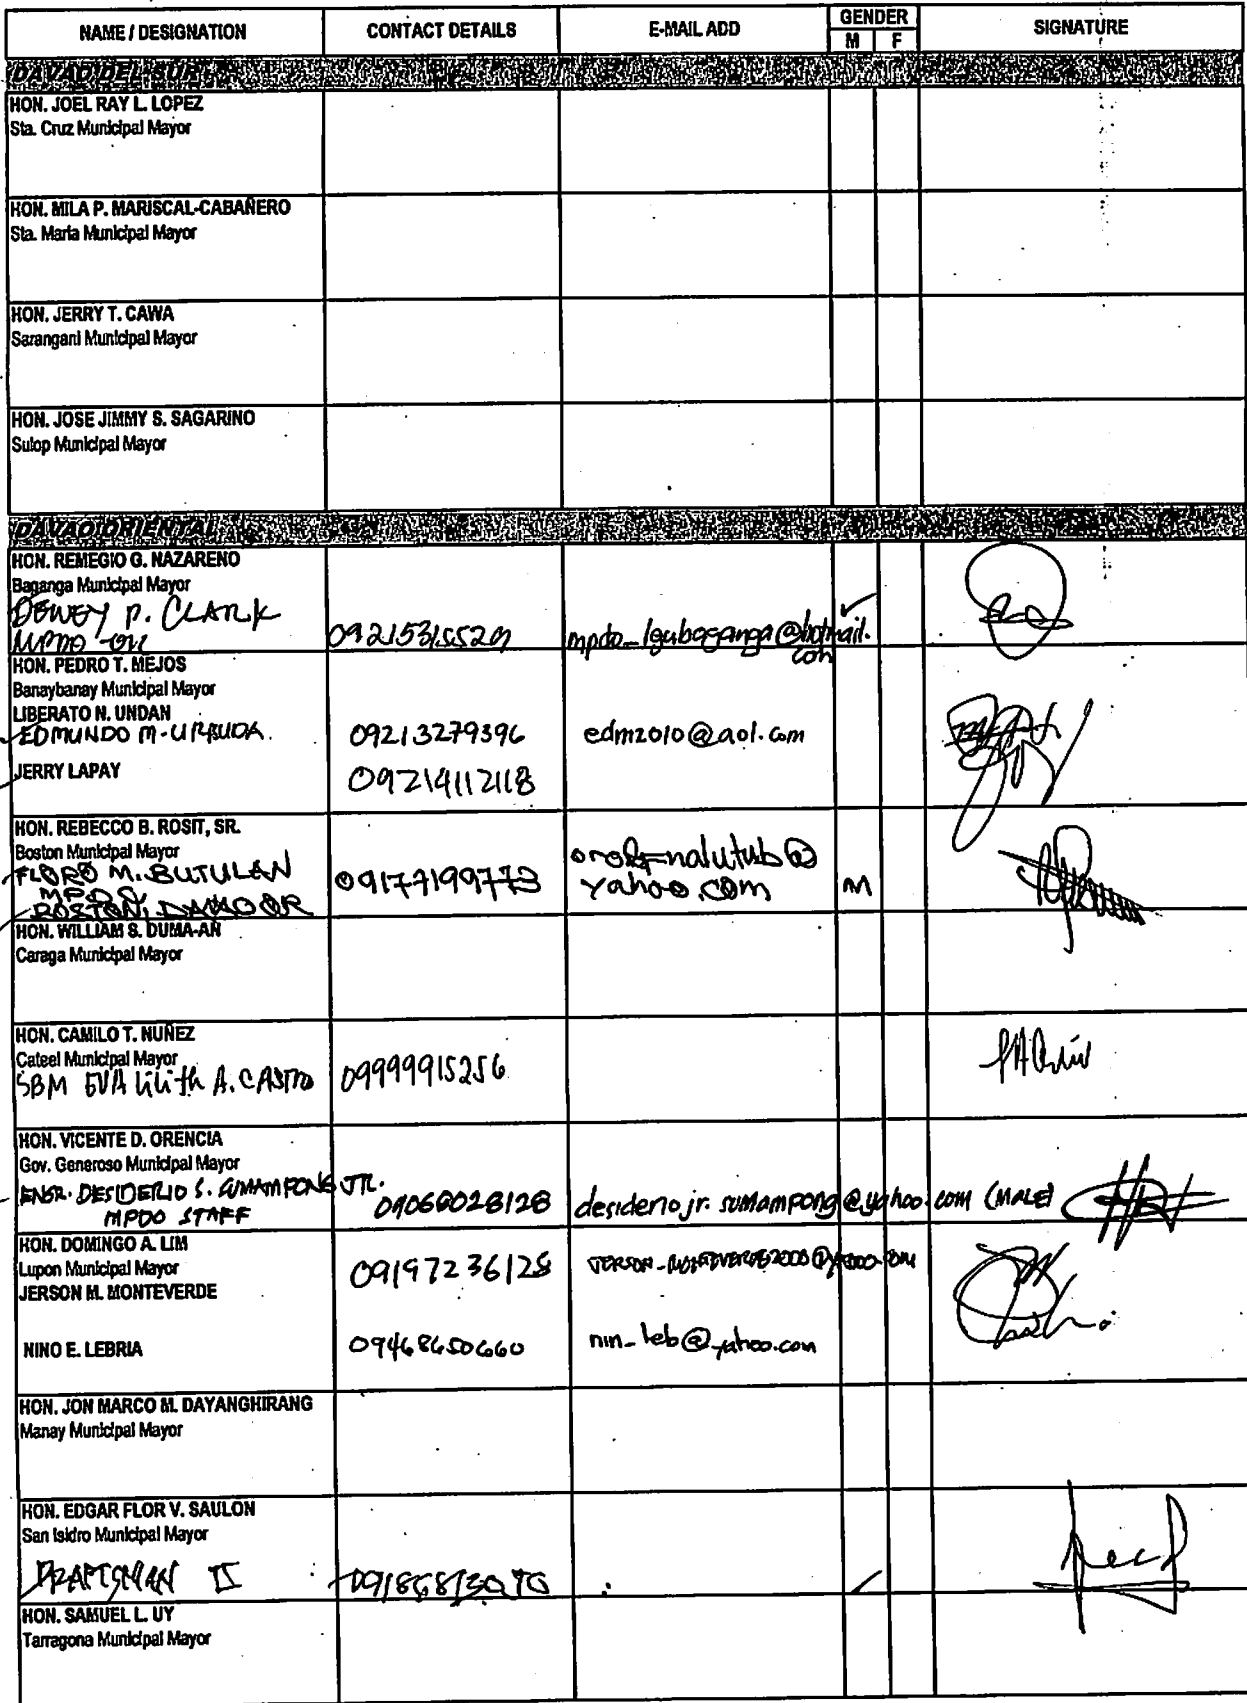 NAME / DESIGNATION CONTACT DETAILS E-MAIL ADD GENDER SIGNATURE
M F
DAVAO DEL SUR
HON. JOEL RAY L. LOPEZ
Sta. Cruz Municipal Mayor
HON. MILA P. MARISCAL-CABAÑERO
Sta. Maria Municipal Mayor
HON. JERRY T. CAWA
Sarangani Municipal Mayor
HON. JOSE JIMMY S. SAGARINO
Sulop Municipal Mayor
DAVAO ORIENTAL
HON. REMEGIO G. NAZARENO
Baganga Municipal Mayor
DEWEY P. CLARK
09215315520 mpdo_lgubaganga@hotmail.
com
HON. PEDRO T. MEJOS
Banaybanay Municipal Mayor
LIBERATO N. UNDAN
EDMUNDO M. 09213279396 edm2010@aol.com
JERRY LAPAY 09214112118
HON. REBECCO B. ROSIT, SR.
Boston Municipal Mayor
FLORO M. BUTULAN 09177199773 M
MPDC yahoo.com
BOSTON, DAVAO OR
HON. WILLIAM S. DUMA-AN
Caraga Municipal Mayor
HON. CAMILO T. NUÑEZ
Cateel Municipal Mayor
SBM EVA Lilith A. CASTRO 09999915256
HON. VICENTE D. ORENCIA
Gov. Generoso Municipal Mayor
ENGR. DESIDERIO S. SUMAMPONG JR. 09066028128 desiderio jr. sumampong@yahoo.com (MALE)
MPDO STAFF
HON. DOMINGO A. LIM
Lupon Municipal Mayor 09197236128
JERSON M. MONTEVERDE
NINO E. LEBRIA 09468650660 nin_leb@yahoo.com
HON. JON MARCO M. DAYANGHIRANG
Manay Municipal Mayor
HON. EDGAR FLOR V. SAULON
San Isidro Municipal Mayor
DRAFTSMAN II
HON. SAMUEL L. UY
Tarragona Municipal Mayor